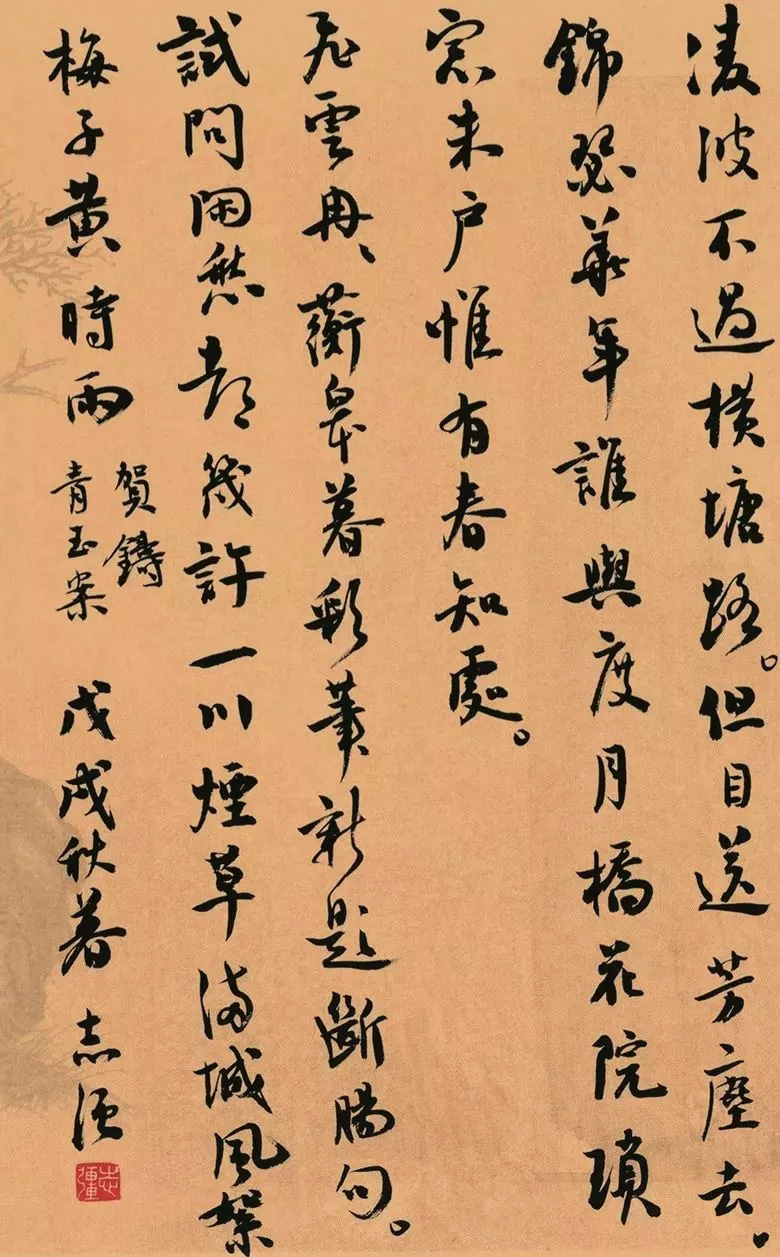 凌波不過橫塘路。但目送芳塵去。
錦瑟華年誰與度月橋花院瑣
窓朱户惟有春知處。
飛雲冉、蘅皋暮彩筆新題斷腸句。
試問閑愁都幾許一川煙草滿城風絮
梅子黃時雨
賀鑄
青玉案
戊戌秋暮 志强